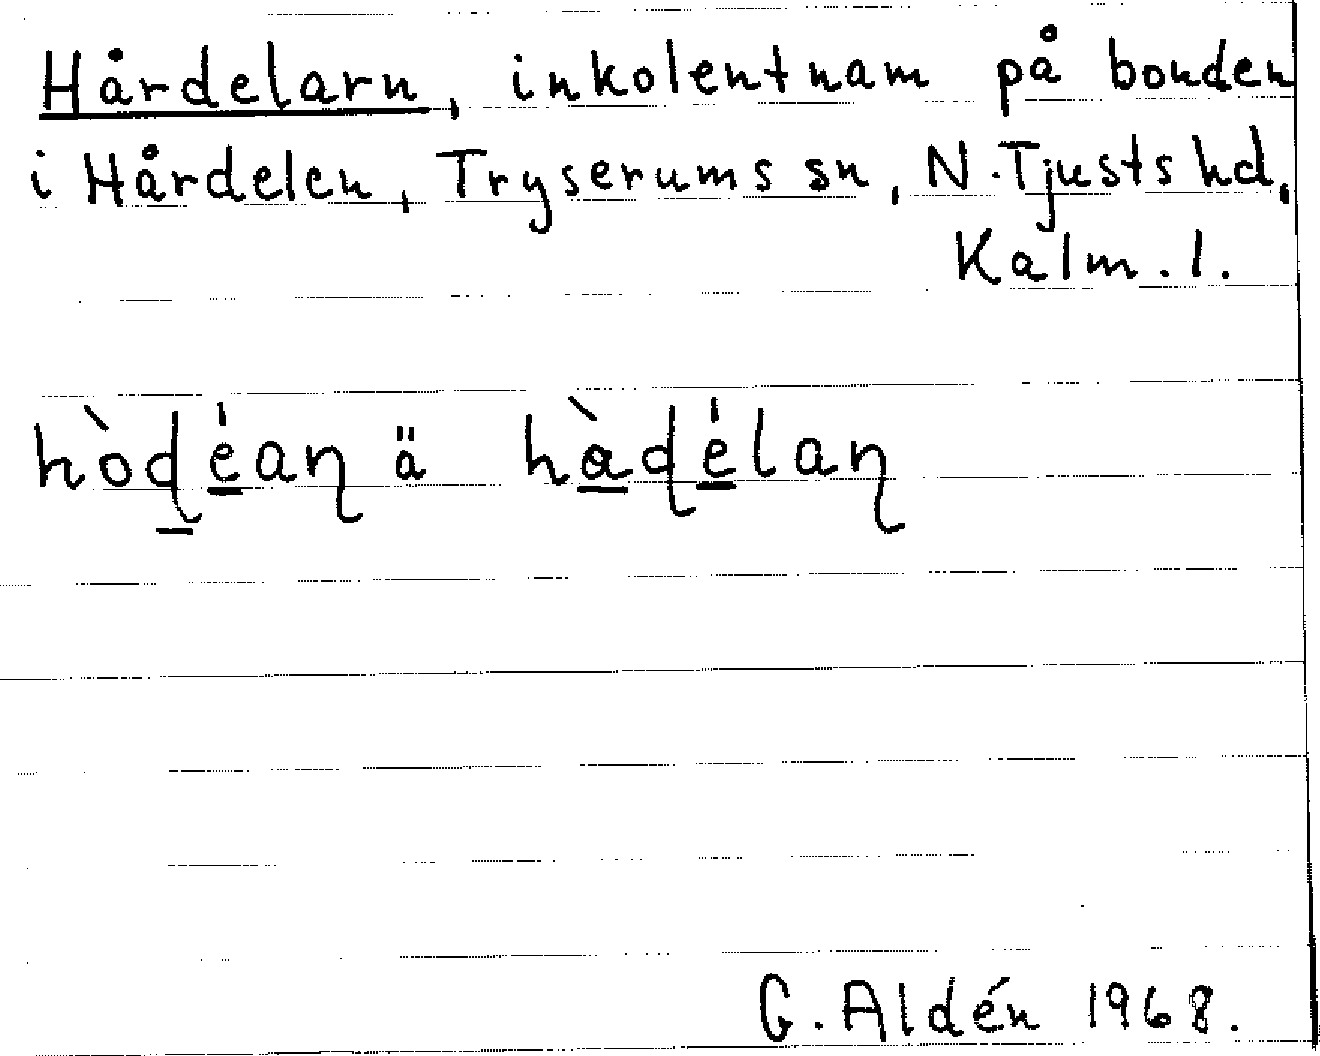 Hårdelarn, inkolentnam på bonden
i Hårdelen, Tryserums sn, N. Tjusts hd,
Kalm. l.
hòɖéaɳ ä hàɖélaɳ
G. Aldén 1968.